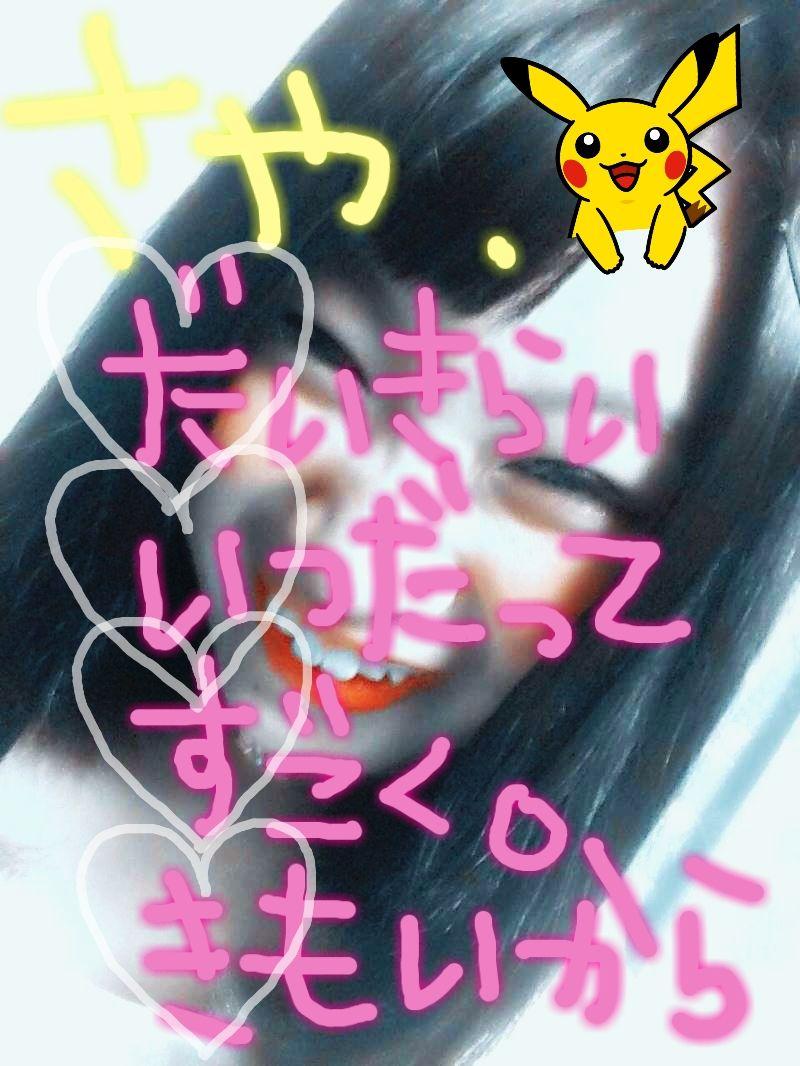 さや.
だいきらい
いつだって
すごく。
きもいから